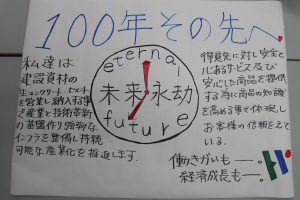 100年その先へ
私達は
建設資材の
生コンクリート、セメント
を営業し納入する事
で産業と技術革新
の基盤作り強物な
インフラを整備し持続
可能な産業化を推進します。
eternal
未来永劫
future
得意先に対し安全と
心あるサービス及び
安心した商品を提供
する為に商品の知識
を高める事で体現し
お客様の信頼をえている。
働きがいも
経済成長も